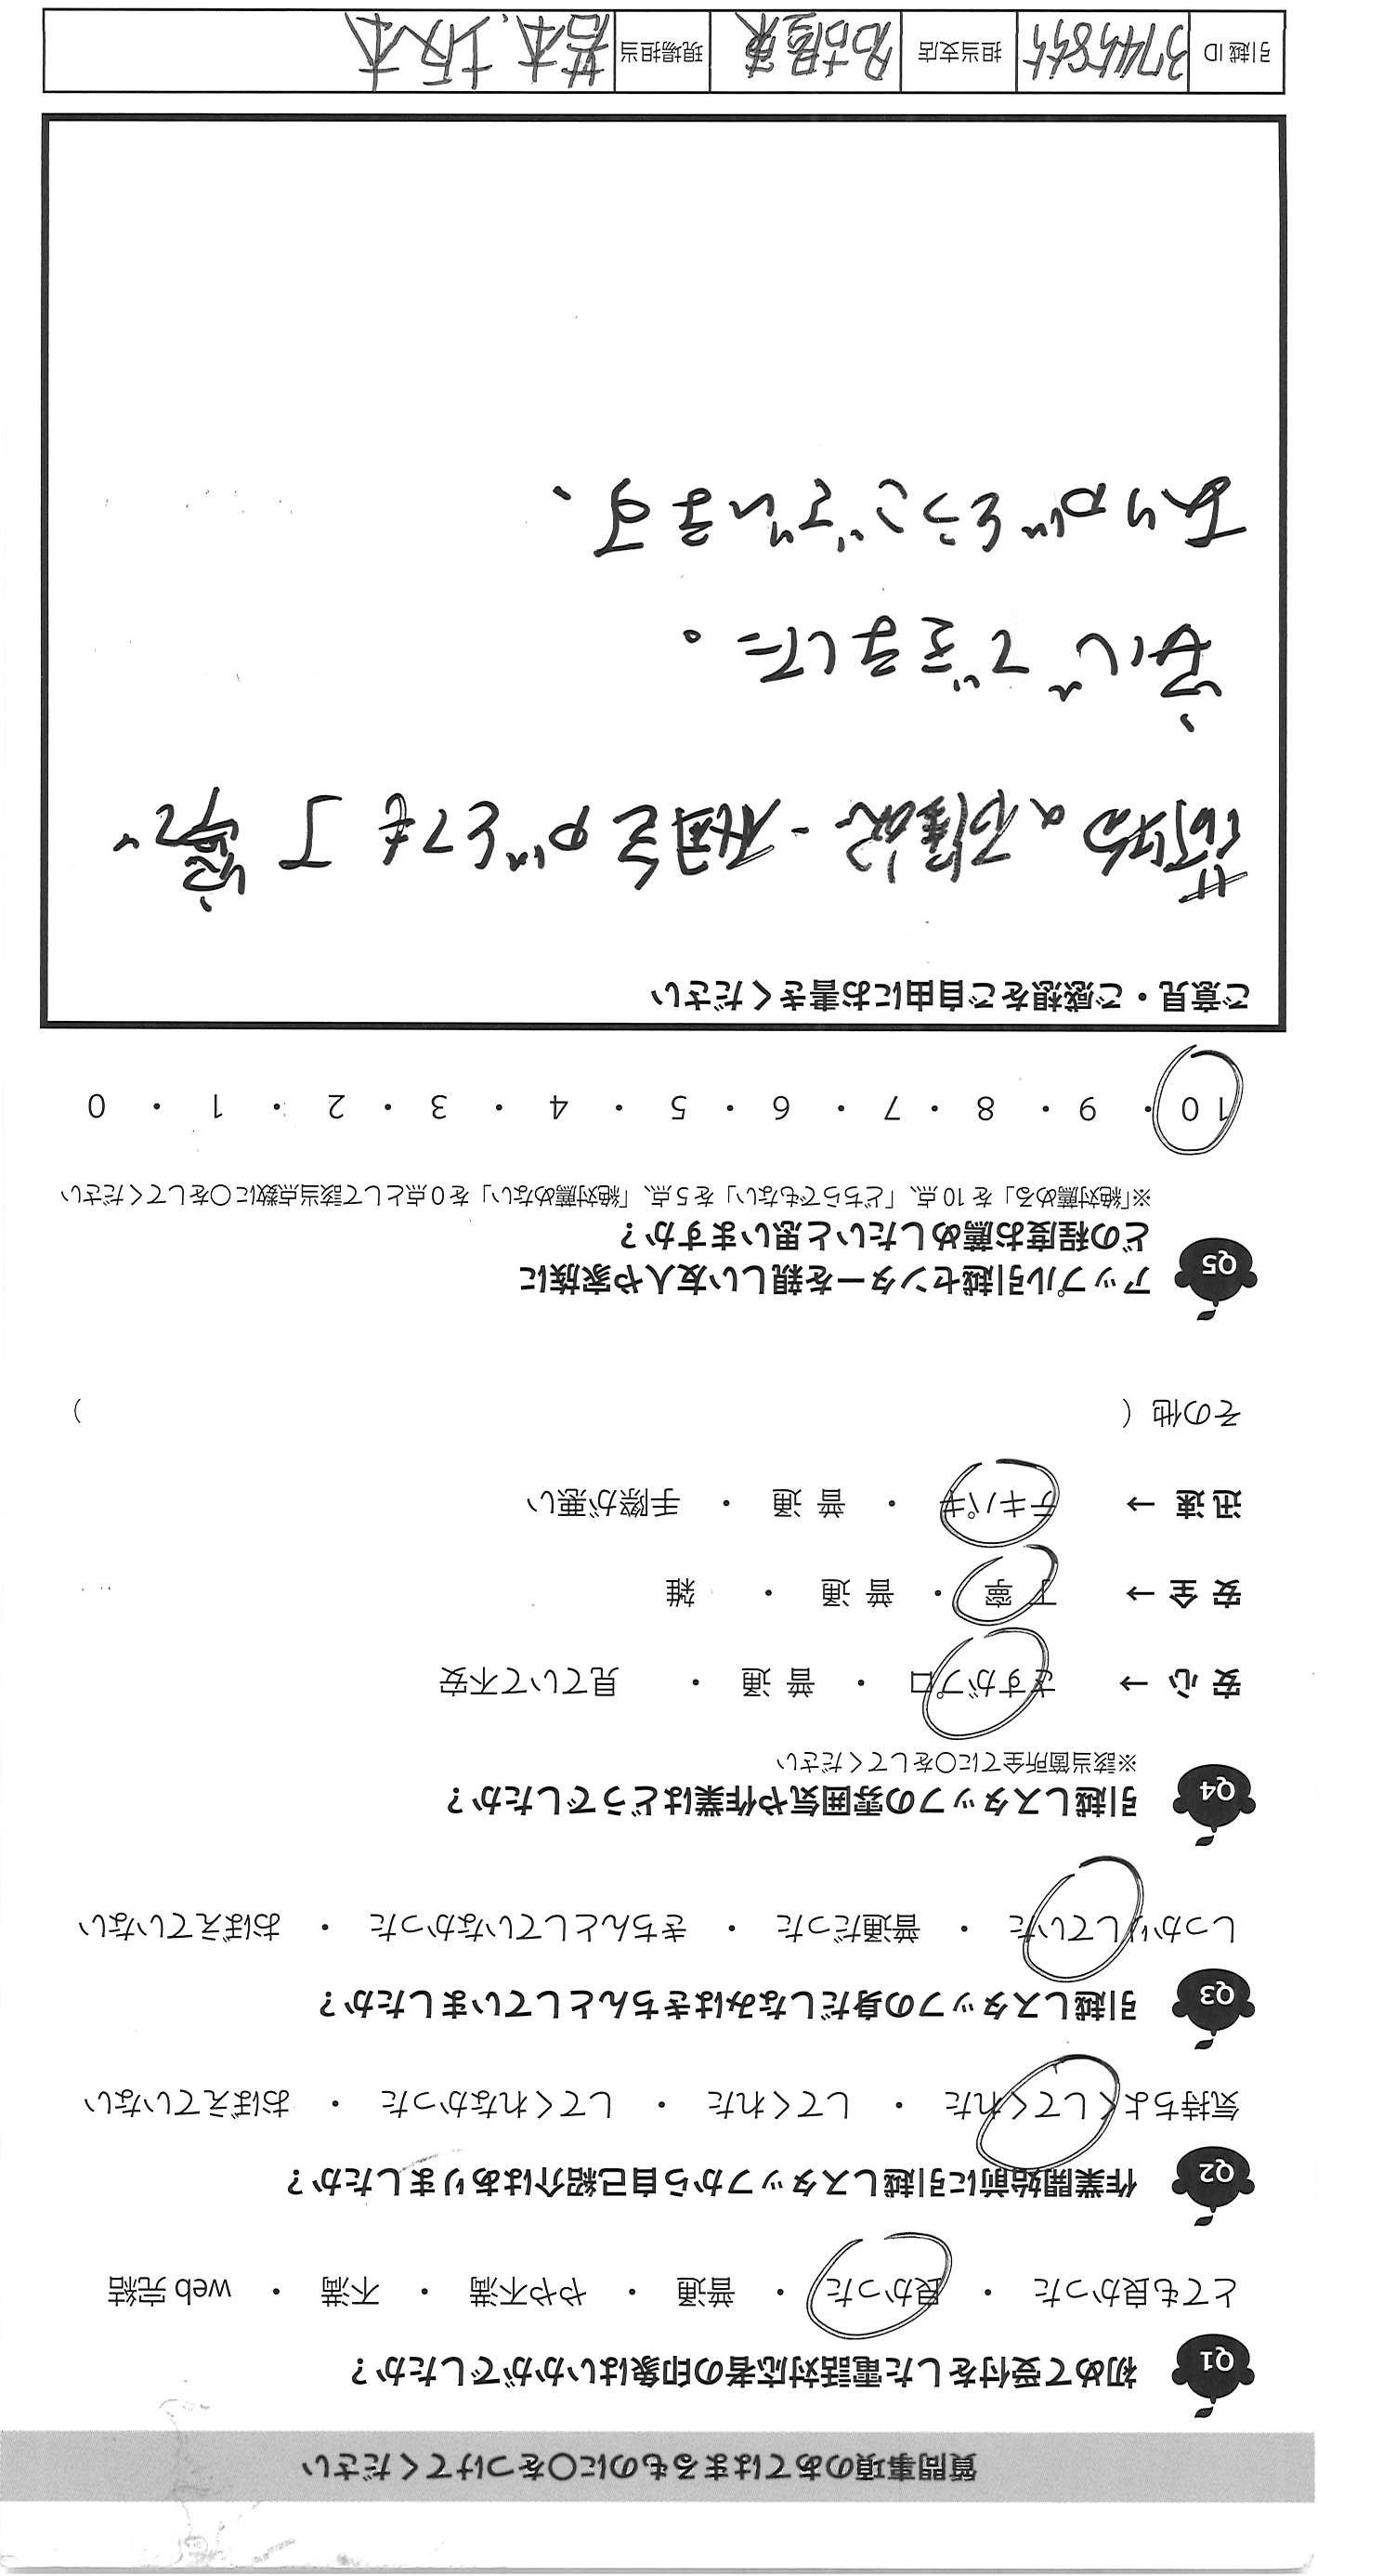 質問事項のあてはまるものに〇をつけてください
Q1 初めて受付をした電話対応者の印象はいかがでしたか？
とても良かった ・ 良かった ・ 普通 ・ やや不満 ・ 不満 ・ web 完結
Q2 作業開始前に引越しスタッフから自己紹介はありましたか？
気持ちよくしてくれた ・ してくれた ・ してくれなかった ・ おぼえていない
Q3 引越しスタッフの身だしなみはきちんとしていましたか？
しっかりしていた ・ 普通だった ・ きちんとしていなかった ・ おぼえていない
Q4 引越しスタッフの雰囲気や作業はどうでしたか？
※該当箇所全てに〇をしてください
安心 → さすがプロ ・ 普通 ・ 見ていて不安
安全 → 丁寧 ・ 普通 ・ 雑
迅速 → テキパキ ・ 普通 ・ 手際が悪い
その他（ ）
Q5 アップル引越センターを親しい友人や家族に
どの程度お薦めしたいと思いますか？
※「絶対薦める」を 10 点、「どちらでもない」を 5 点、「絶対薦めない」を 0 点として該当点数に〇をしてください
10 ・ 9 ・ 8 ・ 7 ・ 6 ・ 5 ・ 4 ・ 3 ・ 2 ・ 1 ・ 0
ご意見・ご感想をご自由にお書きください
荷物の確認・梱包がとても丁寧で
安心できました。
ありがとうございます、
引越 ID 担当支店 名古屋東 現場担当 岩本、坂本